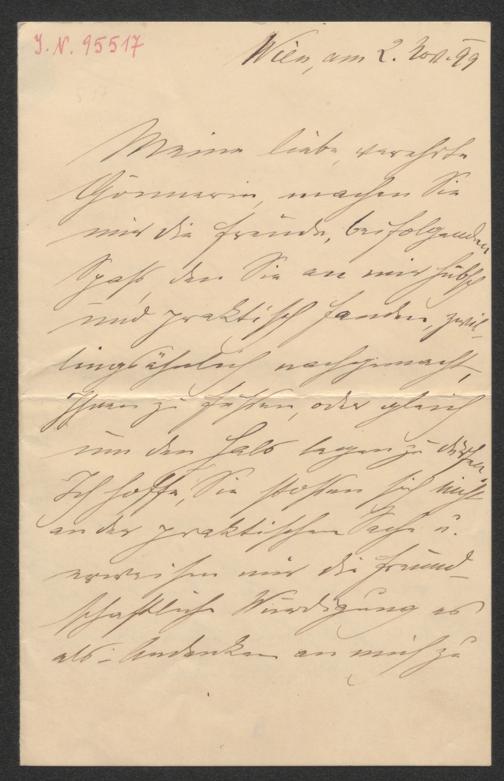 J. N. 95517
Wien, am 2. Nov. 99
Meine liebe, verehrte
Gönnerin, machen Sie
mir die Freude, beifolgenden
Spaß, den Sie an mir hübsch
und praktisch fanden, zwil-
lingsähnlich nachgemacht,
Ihnen zu Füßen, oder gleich
um den Hals legen zu dürfen
Ich hoffe, Sie stoßen sich nicht
an der praktischen Sache u.
erweisen mir die freund-
schaftliche Würdigung es
als Andenken an mich zu